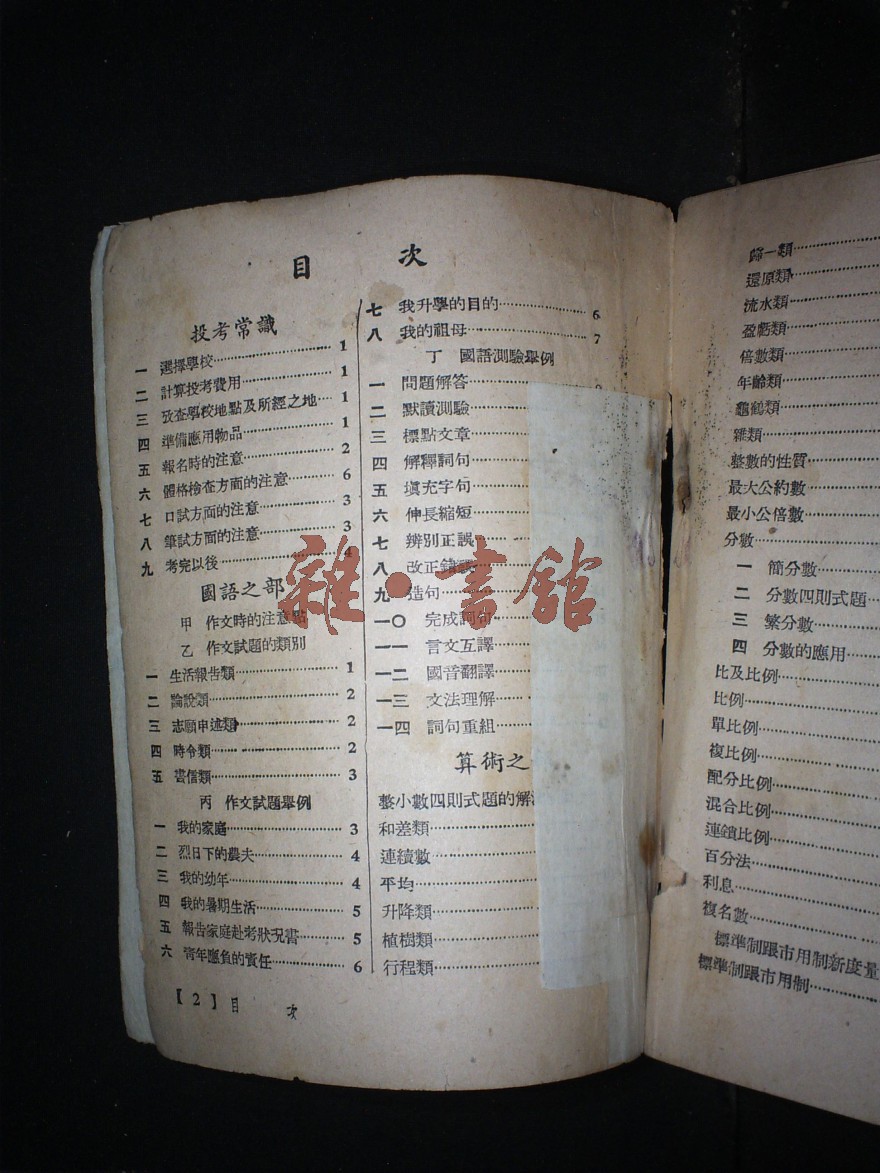 目 次
投考常識
一 選擇學校 1
二 計算投考費用 1
三 攷查學校地點及所經之地 1
四 準備應用物品 1
五 報名時的注意 2
六 體格檢查方面的注意 6
七 口試方面的注意 3
八 筆試方面的注意 3
九 考完以後 4
國語之部
甲 作文時的注意點
乙 作文試題的類別
一 生活報告類 1
二 論說類 2
三 志願申述類 2
四 時令類 2
五 書信類 3
丙 作文試題舉例
一 我的家庭 3
二 烈日下的農夫 4
三 我的幼年 4
四 我的暑期生活 5
五 報告家庭赴考狀況書 5
六 靑年應負的責任 6
【2】目 次
七 我升學的目的 6
八 我的祖母 7
丁 國語測驗舉例
一 問題解答
二 默讀測驗
三 標點文章
四 解釋詞句
五 塡充字句
六 伸長縮短
七 辨別正誤
八 改正錯誤
九 造句
一〇 完成詞句
一一 言文互譯
一二 國音翻譯
一三 文法理解
一四 詞句重組
算術之
整小數四則式題的解法
和差類
連續數
平均
升降類
植樹類
行程類
歸一類
還原類
流水類
盈虧類
倍數類
年齡類
龜鶴類
雜類
整數的性質
最大公約數
最小公倍數
分數
一 簡分數
二 分數四則式題
三 繁分數
四 分數的應用
比及比例
比例
單比例
複比例
配分比例
混合比例
連鎖比例
百分法
利息
複名數
標準制跟市用制新度量
標準制跟市用制
雜·書館